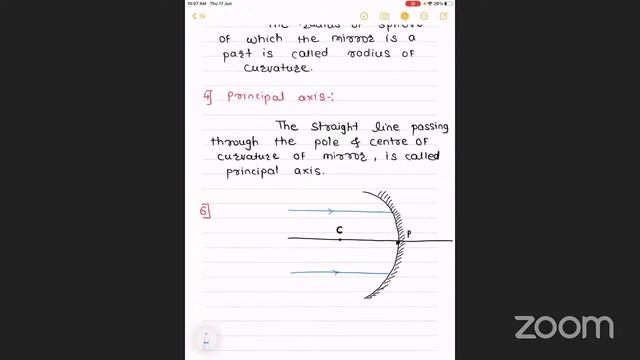 10:07 AM Thu 17 Jun
26%
34
The radius of sphere
of which the mirror is a
part is called rodius of
curvature.
4] Principal axis-:
The straight line passing
through the pole & centre of
curvature of mirror, is called
principal axis.
6]
C
P
zoom